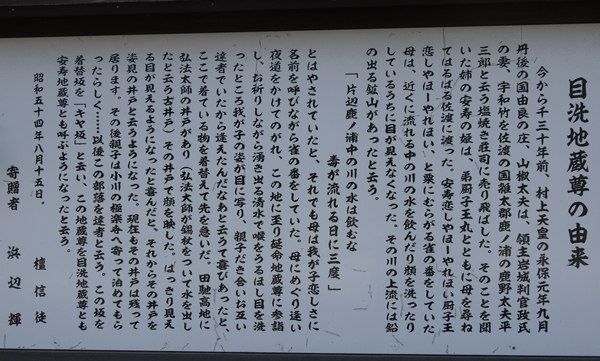 目洗地蔵尊の由来
今から千三十年前、村上天皇の永保元年九月
丹後の国由良の庄、山椒太夫は、領主岩城判官政氏
の妻、宇和竹を佐渡の国雑太郡鹿ノ浦の鹿野太夫平
三郎と云う塩焼き荘司に売り飛ばした。そのことを聞
いた姉の安寿の姫は、弟厨子王丸とともに母を尋ね
てはるばる佐渡に渡った。安寿恋しやほーやれほい厨子王
恋しやほーやれほい、と粟にむらがる雀の番をしていた
母は、近くに流れる中の川の水を飲んだり顔を洗ったり
しているうちに目が見えなくなった。その川の上流には鉛
の出る鉱山があったと云う。
「片辺鹿ノ浦中の川の水は飲むな
毒が流れる日に三度」
とはやされていたと、それでも母は我が子恋しさに
名前を呼びながら雀の番をしていた。母にめぐり逢い
夜道をかけてのがれ、この地に至り延命地蔵尊に参詣
し、お祈りしながら湧き出る清水で喉をうるほし目を洗
ったところ我が子の姿が目に写り、親子だき合いお互い
達者でいたから逢えたんだなあと云うて喜びあったと、
ここで着ている物を着替えて先を急いだ。田馳高地に
弘法大師の井戸があり(弘法大師が錫杖をついて水を出し
たと云う古井戸)その井戸で顔を映した。はっきり見え
る目が見えるようになったと喜んだと、それからその井戸を
姿見の井戸と云うようになった。現在もその井戸は残って
居ります。その後親子は小川の極楽寺へ寄って泊めてもら
ったらしく……以後この部落を達者と云う。この坂を
着替坂を「キヤ坂」と云い、この地蔵尊を目洗地蔵尊とも
安寿地蔵尊とも呼ぶようになったと云う。
昭和五十四年八月十五日。
檀信徒
寄贈者 浜辺輝